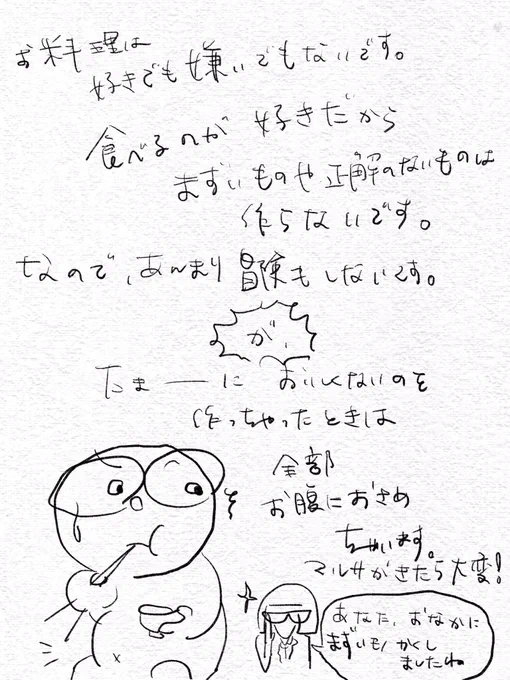 お料理は
好きでも嫌いでもないです。
食べるのが 好きだから
まずいものや正解のないものは
作らないです。
なので、あんまり冒険もしないです。
が、
たま――に おいしくないのを
作っちゃったときは
全部
お腹におさめ
ちゃいます。
マルサがきたら大変!
あなた、おなかに
まずいモノかくし
ましたね